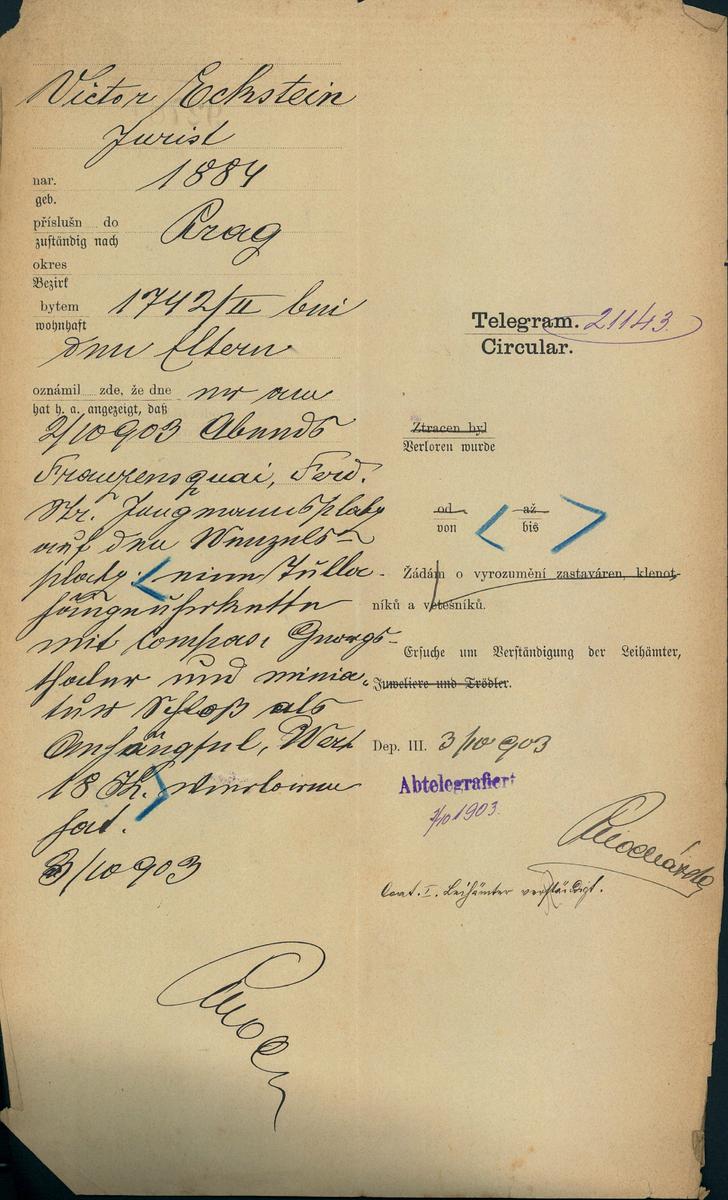 Victor Eckstein
Jurist
nar. 1884
geb.
příslušn do Prag
zuständig nach
okres
Bezirk
bytem 1742/II bei
wohnhaft
den Eltern
oznámil zde, že dne er am
hat h. a. angezeigt, daß
2/10 903 Abends
Franzensquai, Ferd.
Str. Jungmannsplatz
auf den Wenzels-
platz. < eine Tulla-
hängeuhrkette
mit Compas, Georgs-
thaler und minia-
tur Schloß als
Anhängsel, Wert
18 K. > verloren
hat.
3/10 903
Telegram. 21143.
Circular.
Ztracen byl
Verloren wurde
od až
von < bis >
Žádám o vyrozumění zastaváren, klenot-
níků a vetešníků.
Ersuche um Verständigung der Leihämter,
Juweliere und Trödler.
Dep. III. 3/10 903
Abtelegrafiert
/10 1903.
I. Leihämter verständigt.